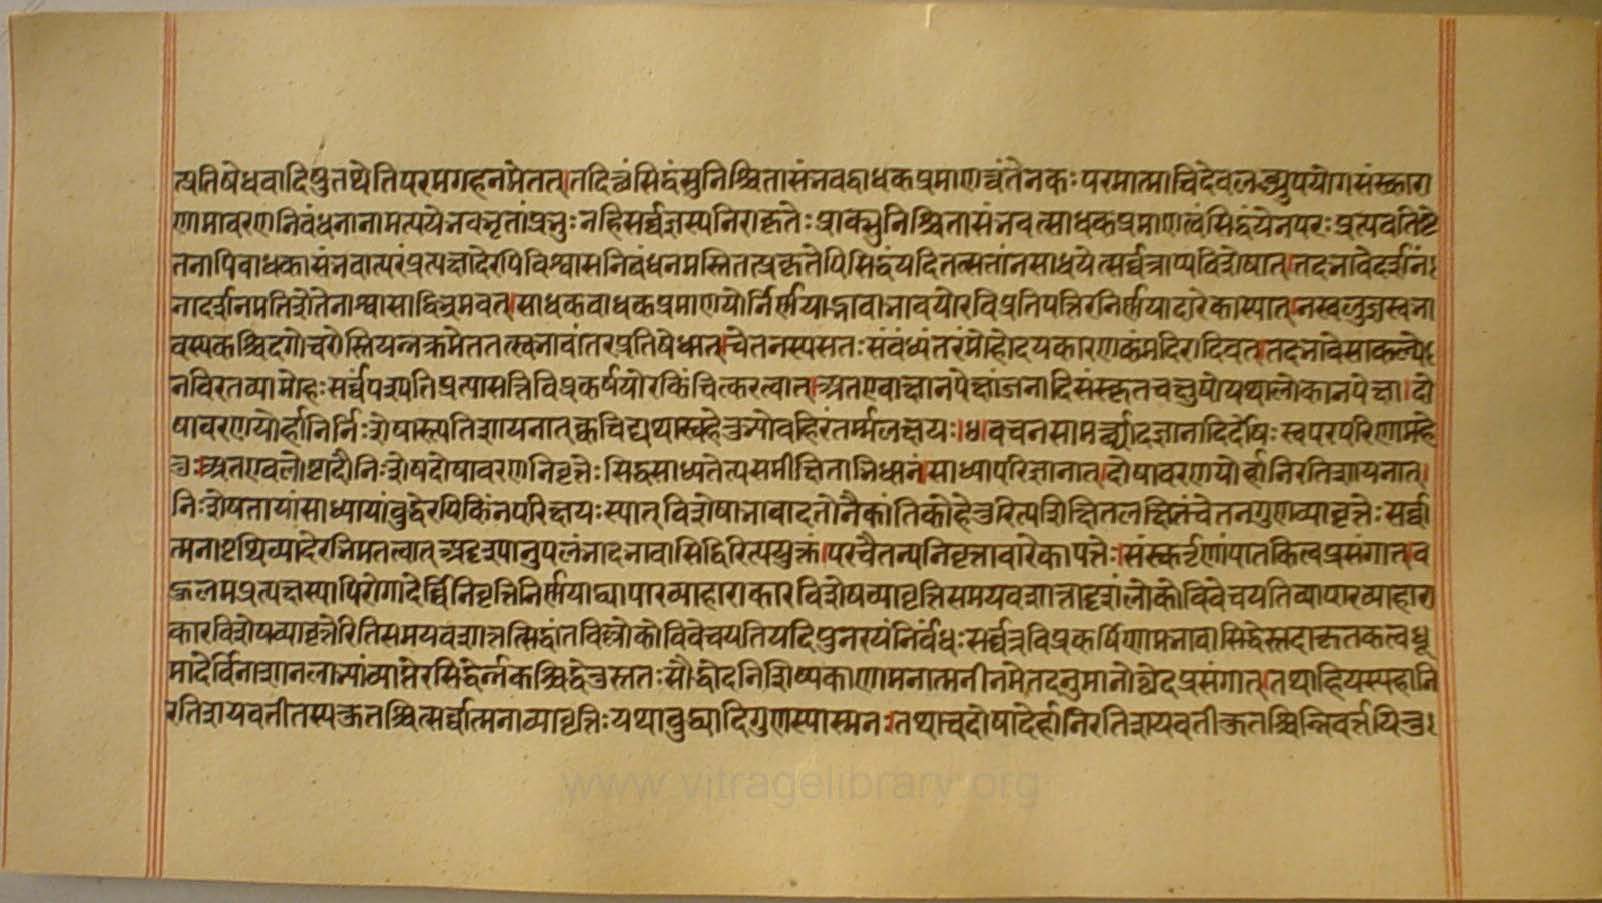 त्प्रतिषेधवादिषुतथेतिपरमगहनमेतत्।तदित्थंसिद्धंसुनिश्चितासंभवद्बाधकप्रमाणत्वंतेनकः परमात्माचिदेवलब्ध्युपयोगसंस्कारा
णामावरणनिबंधनानामत्ययेभवभृतांप्रभुः नहिसर्व्वज्ञस्यनिराकृतेः प्राक्सुनिश्चितासंभवत्साधकप्रमाणत्वंसिद्धंयेनपरः प्रत्यवतिष्टे
तनापिबाधकासंभवात्परंप्रत्यक्षादेरपिविश्वासनिबंधनमस्तितत्प्रकृतेपिसिद्धंयदितत्सत्तांनसाधयेत्सर्व्वत्राप्यविशेषात्।तदभावेदर्शनं
नादर्शनमतिशेतेनाश्वासाद्विभ्रमवत्।साधकबाधकप्रमाणयोर्निर्णयाद्भावाभावयोरविप्रतिपत्तिरनिर्णयादारेकास्यात्।नखलुज्ञस्वभा
वस्यकश्चिदगोचरोस्तियन्नक्रमेततत्स्वभावांतरप्रतिषेधात्।चेतनस्यसतः संबंध्यंतरंमोहोदयकारणकंमदिरादिवत्।तदभावेसाकल्ये
नविरतव्यामोहः सर्व्वंपश्यतिप्रत्यासत्तिविप्रकर्षयोरकिंचित्करत्वात्।अतएवाक्षानपेक्षांजनादिसंस्कृतचक्षुषोयथालोकानपेक्षा।दो
षावरणयोर्हानिर्निःशेषास्त्यतिशायनात्क्वचिद्यथास्वहेतुभ्योबहिरंतर्म्मलक्षयः।४।वचनसामर्थ्यादज्ञानादिर्दोषः स्वपरपरिणामहे
तुः।अतएवलोष्टादौनिःशेषदोषावरणनिवृत्तेः सिद्धसाध्यतेत्यसमीक्षिताभिधानं।साध्यापरिज्ञानात्।दोषावरणयोर्हानिरतिशायनात्।
निःशेषतायांसाध्यायांबुद्धेरपिकिंनपरिक्षयः स्यात्विशेषाभावादतोनैकांतिकोहेतुरित्यशिक्षितलक्षितंचेतनगुणव्यावृत्तेः सर्व्वा
त्मनापृथिव्यादेरभिमतत्वात्अदृश्यानुपलंभादभावासिद्धिरित्ययुक्तं।परचैतन्यनिवृत्तावारेकापत्तेः।संस्कर्तॄणांपातकित्वप्रसंगात्।ब
हुलमप्रत्यक्षस्यापिरोगादेर्विनिवृत्तिनिर्णयाद्व्यापारव्याहाराकारविशेषव्यावृत्तिसमयवशात्तादृशंलोकोविवेचयतिव्यापारव्याहारा
कारविशेषव्यावृत्तेरितिसमयवशात्तत्सिद्धांतविल्लोकोविवेचयतियदिपुनरयंनिर्बंधः सर्व्वत्रविप्रकर्षिणामभावासिद्धेस्तदाकृतकत्वधू
मादेर्विनाशानलाभ्यांव्याप्तेरसिद्धेर्नकश्चिद्धेतुस्ततः सौद्धोदनिशिष्यकाणामनात्मनीनमेतदनुमानोच्छेदप्रसंगात्।तथाहियस्यहानि
रतिशयवतीतस्यकुतश्चित्सर्व्वात्मनाव्यावृत्तिः यथाबुद्ध्यादिगुणस्यास्मनः।तथाचदोषादेर्हानिरतिशयवतीकुतश्चिन्निवर्त्तयितु
www.vitragelibrary.org